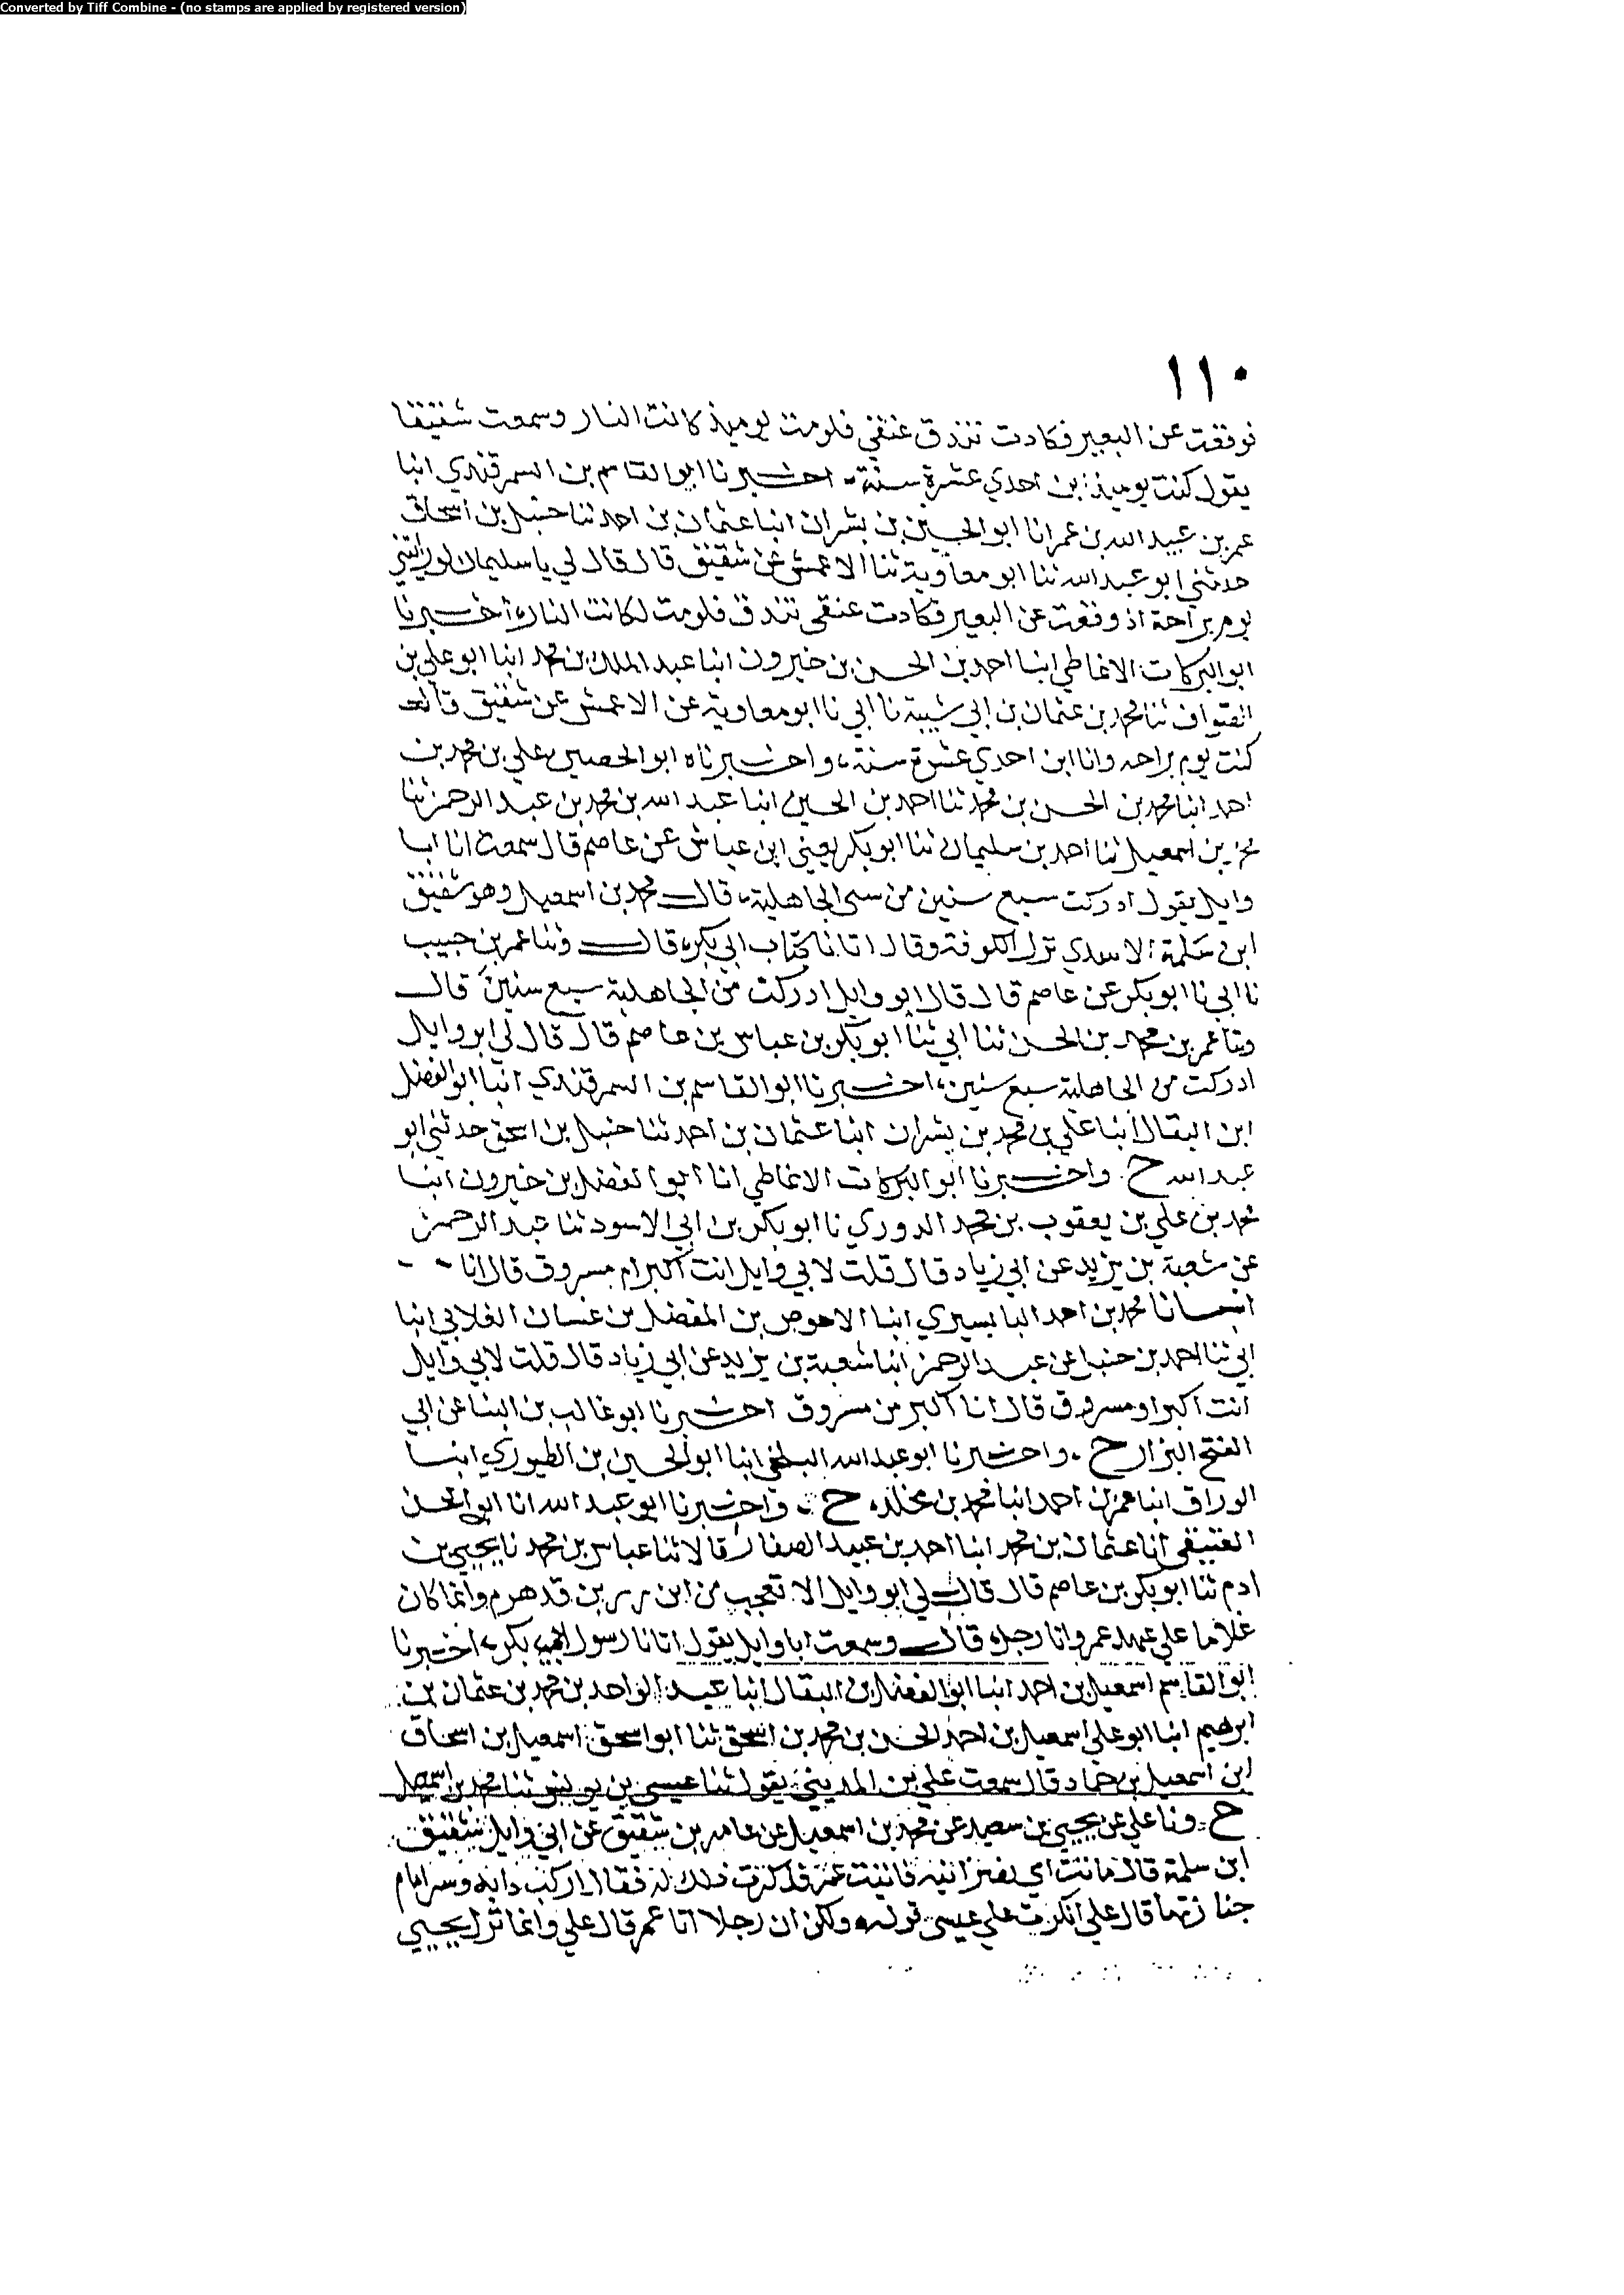 Converted by Tiff Combine - (no stamps are applied by registered version)
١١٠
فوقعت عن البعير فكادت تندق عنقي فلومت يوميذ كانت النار وسمعت شقيقا
يقول كنت يوميذ ابن احدي عشرة سنة، اخبرنا ابو القاسم بن السمرقندي انبا
عمر بن عبيد الله بن عمر انا ابو الحسين بن بشران انبا عثمان بن احمد ثنا حنبل بن اسحاق
حدثني ابو عبد الله ثنا ابو معاوية ثنا الاعمش عن شقيق قال قال لي يا سليمان لو رايتني
يوم براحة اذ وقعت عن البعير فكادت عنقي تندق فلومت لكانت النار، اخبرنا
ابو البركات الانماطي انبا احمد بن الحسن بن خيرون انبا عبد الملك بن محمد انبا ابو علي بن
الصواف ثنا محمد بن عثمان بن ابي شيبة نا ابي نا ابو معاوية عن الاعمش عن شقيق قال
كنت يوم براحه وانا ابن احدي عشرة سنة، واخبرناه ابو الحصين علي بن محمد بن
احمد انبا محمد بن الحسن بن محمد ثنا احمد بن الحسين انبا عبد الله بن محمد بن عبد الرحمن ثنا
محمد بن اسمعيل ثنا احمد بن سليمان ثنا ابو بكر يعني ابن عياش عن عاصم قال سمعت انا ابا
وايل يقول ادركت سبع سنين من سني الجاهلية، قال محمد بن اسمعيل وهو شقيق
ابن سلمة الاسدي نزل الكوفة وقال اتانا كتاب ابي بكر، قال وثنا عمر بن حبيب
نا ابي نا ابو بكر عن عاصم قال قال ابو وايل ادركت من الجاهلية سبع سنين قال
وثنا عمر بن محمد بن الحسن ثنا ابي ثنا ابو بكر بن عباس بن عاصم قال قال لي ابو وايل
ادركت من الجاهلية سبع سنين، اخبرنا ابو القاسم بن السمرقندي انبا ابو الفضل
ابن البقال انبا علي بن محمد بن بشران انبا عثمان بن احمد ثنا حنبل بن اسحق حدثني ابو
عبد الله ح. واخبرنا ابو البركات الانماطي انا ابو الفضل بن خيرون انبا
محمد بن علي بن يعقوب بن محمد الدوري نا ابو بكر بن ابي الاسود ثنا عبد الرحمن
عن شعبة بن يزيد عن ابي زياد قال قلت لابي وايل انت اكبر ام مسروق قال انا
انبانا محمد بن احمد البابسيري انبا الاحوص بن المفضل بن غسان الغلابي انبا
ابي ثنا احمد بن حنبل عن عبد الرحمن انبا شعبة بن يزيد عن ابي زياد قال قلت لابي وايل
انت اكبر او مسروق قال انا اكبر من مسروق اخبرنا ابو غالب بن البنا عن ابي
الفتح البزار ح، واخبرنا ابو عبد الله البلخي انبا ابو الحسين بن الطيوري انبا
الوراق انبا عمر بن احمد انبا محمد بن مخلد، ح، واخبرنا ابو عبد الله انا ابو الحسن
العتيقي انا عثمان بن محمد انبا احمد بن عبيد الصفار قالا ثنا عباس بن محمد نا يحيي بن
ادم ثنا ابو بكر بن عاصم قال قال لي ابو وايل الا تعجب من ابن رزين قد هرم وانما كان
غلاما علي عهد عمر وانا رجل، قال وسمعت ابا وايل يقول اتانا رسول ابي بكر، اخبرنا
ابو القاسم اسمعيل بن احمد انبا ابو الفضل بن البقال انبا عبد الواحد بن محمد بن عثمان بن
ابرهيم انبا ابو علي اسمعيل بن احمد الحسن بن محمد بن اسحق ثنا ابو اسحق اسمعيل بن اسحاق
ابن اسمعيل بن حماد قال سمعت علي بن المديني يقول ثنا عيسي بن يونس ثنا محمد بن اسمعيل
ح. ونا علي عن يحيي بن سعيد عن محمد بن اسمعيل عن عامر بن شقيق عن ابي وايل شقيق
ابن سلمة قال ماتت امي نصرانية فاتيت عمر فذكرت ذلك له فقال اركب دابة وسر امام
جنازتها قال علي انكرت علي عيسي قوله ولكن ان رجلا اتا عمر قال علي وانما ترك يحيي